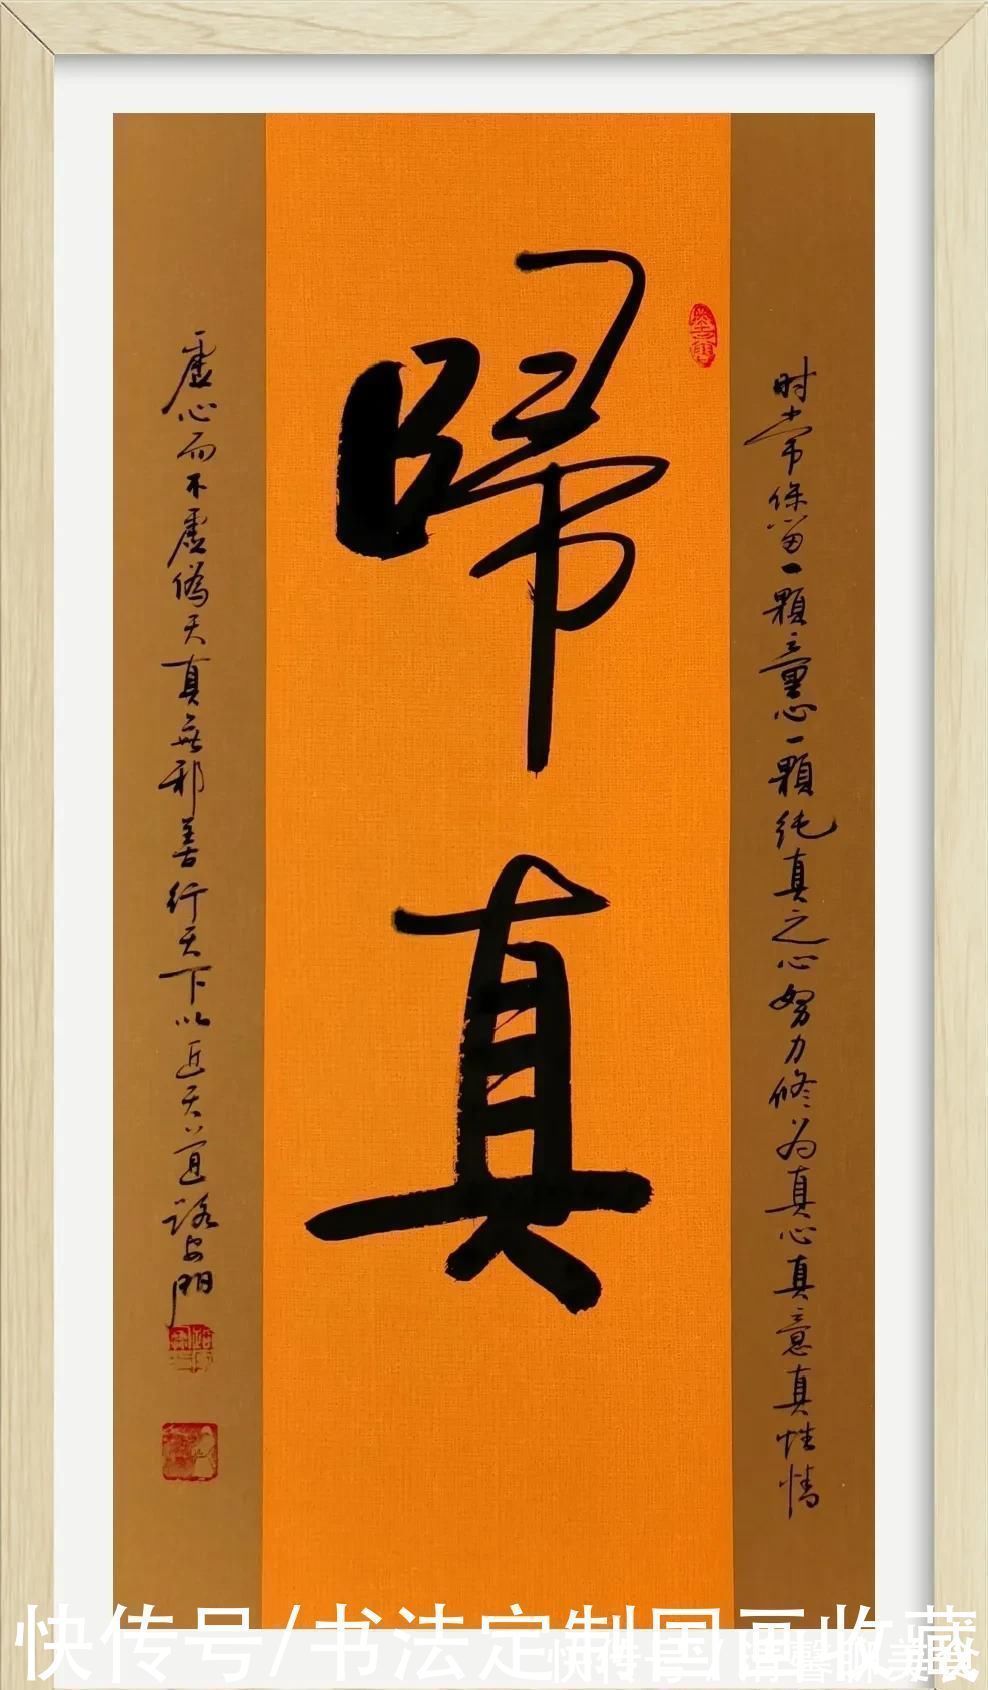 歸真
时常保留一颗童心一颗纯真之心努力修为真心真意真性情
虚心而不虚偽天真無邪善行天下以近天道路安門
快传号/书法定制国画收藏